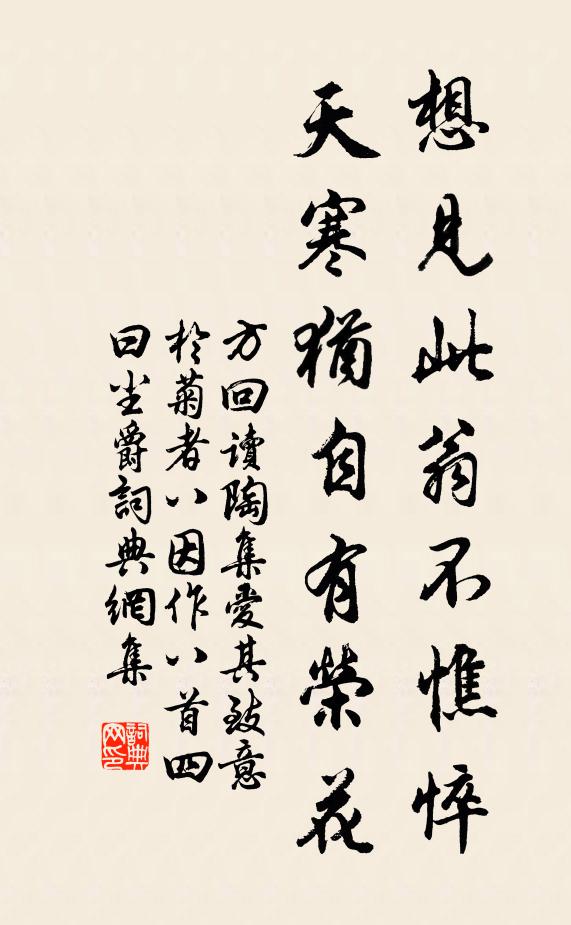 想見此翁不憔悴
天寒猶自有榮花
方回讀陶集愛其致意
於菊者八因作八首四
曰坐爵詞典網集
詞典
网印